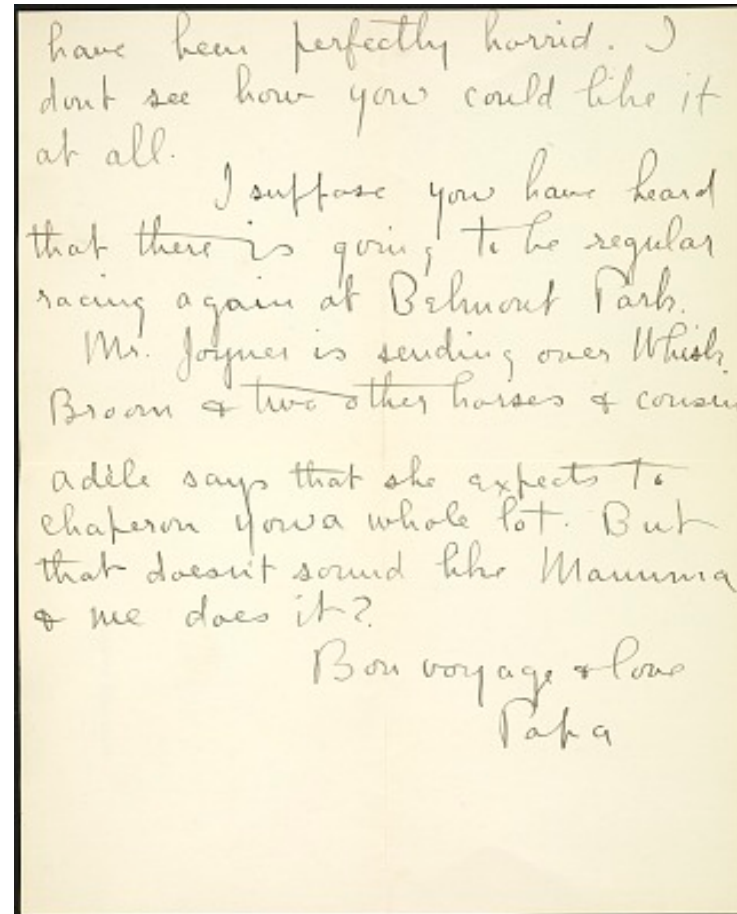 have been perfectly horrid. I
dont see how you could like it
at all.
I suppose you have heard
that there is going to be regular
racing again at Belmont Park.
Mr. Joyner is sending over Whisk
Broom & two other horses & cousin
adèle says that she expects to
chaperon you a whole lot. But
that doesn't sound like Mamma
& me does it?
Bon voyage & love
Papa